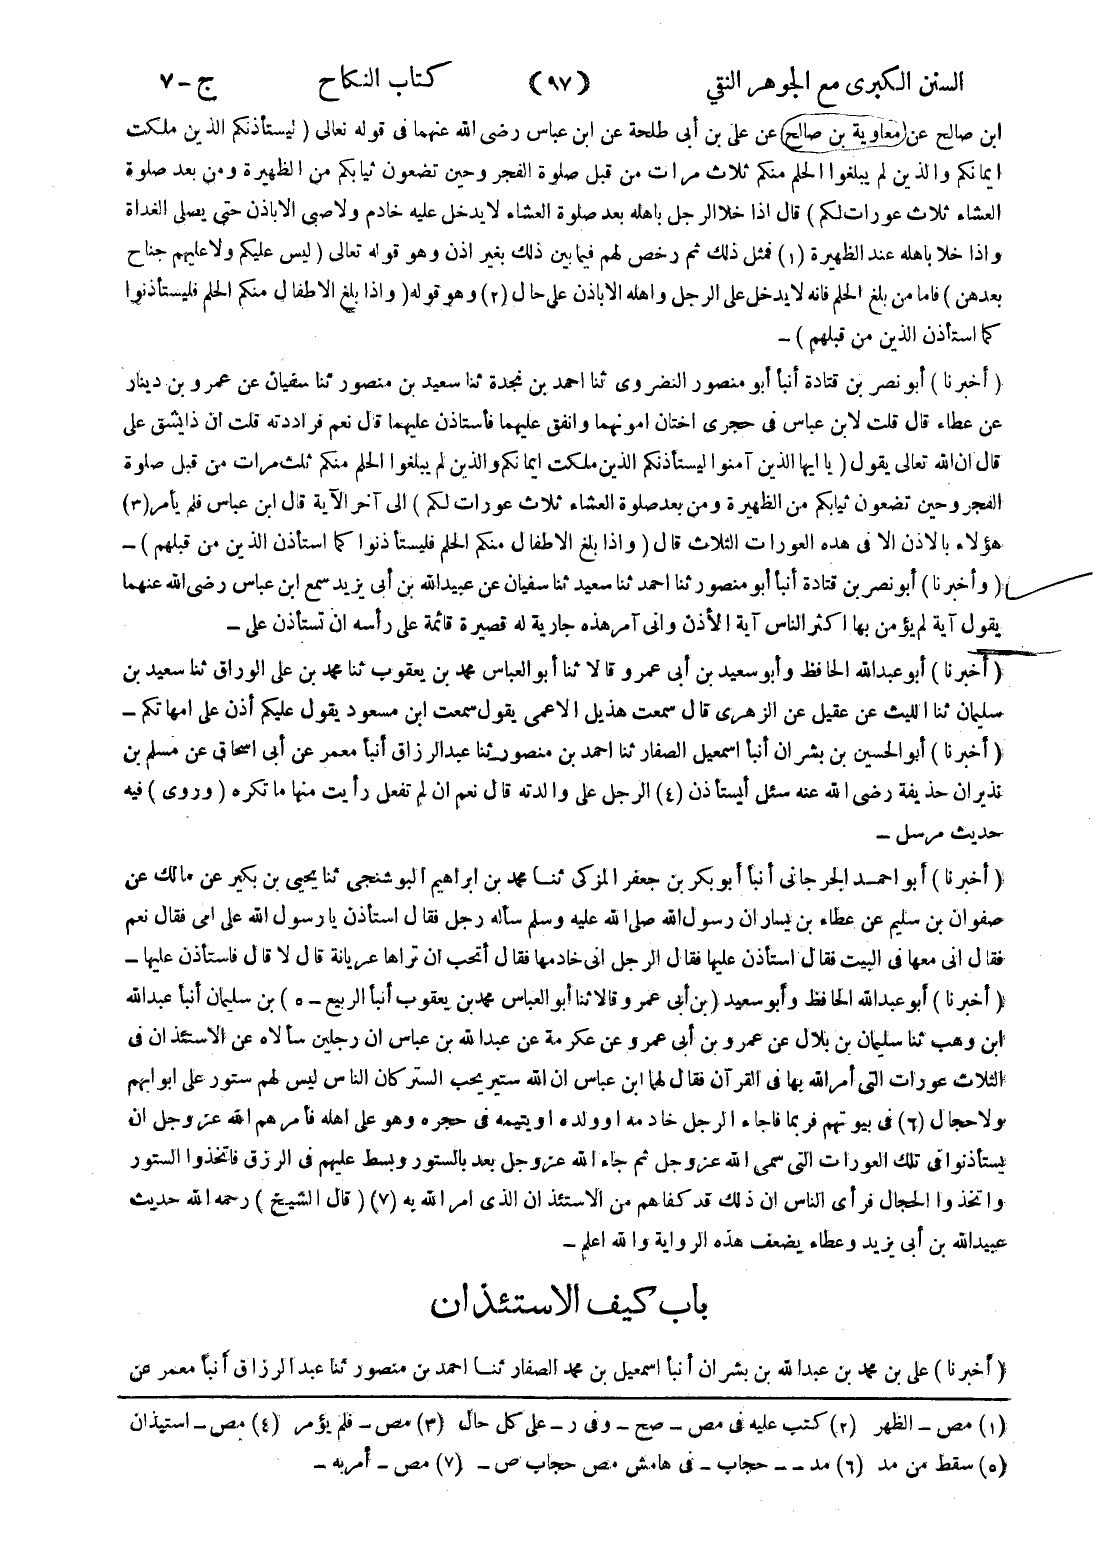 السنن الكبرى مع الجوهر النقي (٩٧) كتاب النكاح ج - ٧
ابن صالح عن معاوية بن صالح عن على بن أبى طلحة عن ابن عباس رضى الله عنهما فى قوله تعالى ( ليستأذنكم الذين ملكت
ايمانكم والذين لم يبلغوا الحلم منكم ثلاث مرات من قبل صلوة الفجر وحين تضعون ثيابكم من الظهيرة ومن بعد صلوة
العشاء ثلاث عورات لكم ) قال اذا خلا الرجل باهله بعد صلوة العشاء لا يدخل عليه خادم ولا صبى الا باذن حتى يصلى الغداة
واذا خلا باهله عند الظهيرة (١) فمثل ذلك ثم رخص لهم فيما بين ذلك بغير اذن وهو قوله تعالى ( ليس عليكم ولا عليهم جناح
بعدهن ) فاما من بلغ الحلم فانه لا يدخل على الرجل واهله الا باذن على حال (٢) وهو قوله ( واذا بلغ الاطفال منكم الحلم فليستأذنوا
كما استأذن الذين من قبلهم ) -
( أخبرنا ) أبو نصر بن قتادة أنبأ أبو منصور النضروى ثنا احمد بن نجدة ثنا سعيد بن منصور ثنا سفيان عن عمرو بن دينار
عن عطاء قال قلت لابن عباس فى حجرى اختان امونهما وانفق عليهما فأستاذن عليهما قال نعم فراددته قلت ان ذا يشق على
قال ان الله تعالى يقول ( يا ايها الذين آمنوا ليستأذنكم الذين ملكت ايمانكم والذين لم يبلغوا الحلم منكم ثلث مرات من قبل صلوة
الفجر وحين تضعون ثيابكم من الظهيرة ومن بعد صلوة العشاء ثلاث عورات لكم ) الى آخر الآية قال ابن عباس فلم يأمر (٣)
هؤلاء بالاذن الا فى هذه العورات الثلاث قال ( واذا بلغ الاطفال منكم الحلم فليستأذنوا كما استأذن الذين من قبلهم ) -
( وأخبرنا ) أبو نصر بن قتادة أنبأ أبو منصور ثنا احمد ثنا سعيد ثنا سفيان عن عبيدالله بن أبى يزيد سمع ابن عباس رضى الله عنهما
يقول آية لم يؤمن بها اكثر الناس آية الأذن وانى آمر هذه جارية له قصيرة قائمة على رأسه ان تستأذن على -
( أخبرنا ) أبو عبدالله الحافظ وأبو سعيد بن أبى عمرو قالا ثنا أبو العباس محمد بن يعقوب ثنا محمد بن على الوراق ثنا سعيد بن
سليمان ثنا الليث عن عقيل عن الزهرى قال سمعت هذيل الاعمى يقول سمعت ابن مسعود يقول عليكم أذن على امهاتكم -
( أخبرنا ) أبو الحسين بن بشران أنبأ اسمعيل الصفار ثنا احمد بن منصور ثنا عبدالرزاق أنبأ معمر عن أبى اسحاق عن مسلم بن
نذير ان حذيفة رضى الله عنه سئل أيستأذن (٤) الرجل على والدته قال نعم ان لم تفعل رأيت منها ما تكره ( وروى ) فيه
حديث مرسل -
( أخبرنا ) أبو احمد الجرجانى أنبأ أبو بكر بن جعفر المزكى ثنا محمد بن ابراهيم البوشنجى ثنا يحيى بن بكير عن مالك عن
صفوان بن سليم عن عطاء بن يسار ان رسول الله صلى الله عليه وسلم سأله رجل فقال استأذن يا رسول الله على امى فقال نعم
فقال انى معها فى البيت فقال استأذن عليها فقال الرجل انى خادمها فقال أتحب ان تراها عريانة قال لا قال فاستأذن عليها -
( أخبرنا ) أبو عبدالله الحافظ وأبو سعيد ( بن أبى عمرو قالا ثنا أبو العباس محمد بن يعقوب أنبأ الربيع - ٥ ) بن سليمان أنبأ عبدالله
ابن وهب ثنا سليمان بن بلال عن عمرو بن أبى عمرو عن عكرمة عن عبدالله بن عباس ان رجلين سألاه عن الاستئذان فى
الثلاث عورات التى أمر الله بها فى القرآن فقال لهما ابن عباس ان الله ستير يحب الستر كان الناس ليس لهم ستور على ابوابهم
ولا حجال (٦) فى بيوتهم فربما فاجاء الرجل خادمه او ولده او يتيمه فى حجره وهو على اهله فأمرهم الله عزوجل ان
يستأذنوا فى تلك العورات التى سمى الله عزوجل ثم جاء الله عزوجل بعد بالستور وبسط عليهم فى الرزق فاتخذوا الستور
واتخذوا الحجال فرأى الناس ان ذلك قد كفاهم من الاستئذان الذى امر الله به (٧) ( قال الشيخ ) رحمه الله حديث
عبيدالله بن أبى يزيد وعطاء يضعف هذه الرواية والله اعلم -
باب كيف الاستئذان
( أخبرنا ) على بن محمد بن عبدالله بن بشران أنبأ اسمعيل بن محمد الصفار ثنا احمد بن منصور ثنا عبدالرزاق أنبأ معمر عن
(١) مص - الظهر (٢) كتب عليه فى مص - صح - وفى ر - على كل حال (٣) مص - فلم يؤمر (٤) مص - استيذان
(٥) سقط من مد (٦) مد - - حجاب - فى هامش مص حجاب ص - (٧) مص - أمر به -